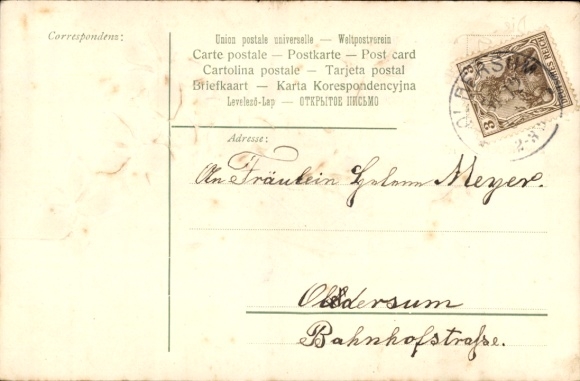 Correspondenz:
Union postale universelle — Weltpostverein
Carte postale — Postkarte — Post card
Cartolina postale — Tarjeta postal
Briefkaart — Karta Korespondencyjna
Levelező-Lap — ОТКРЫТОЕ ПИСЬМО
DEUTSCHES REICH
3
2-3
Adresse:
An Fräulein Meyer.
Oldersum
Bahnhofstraße.